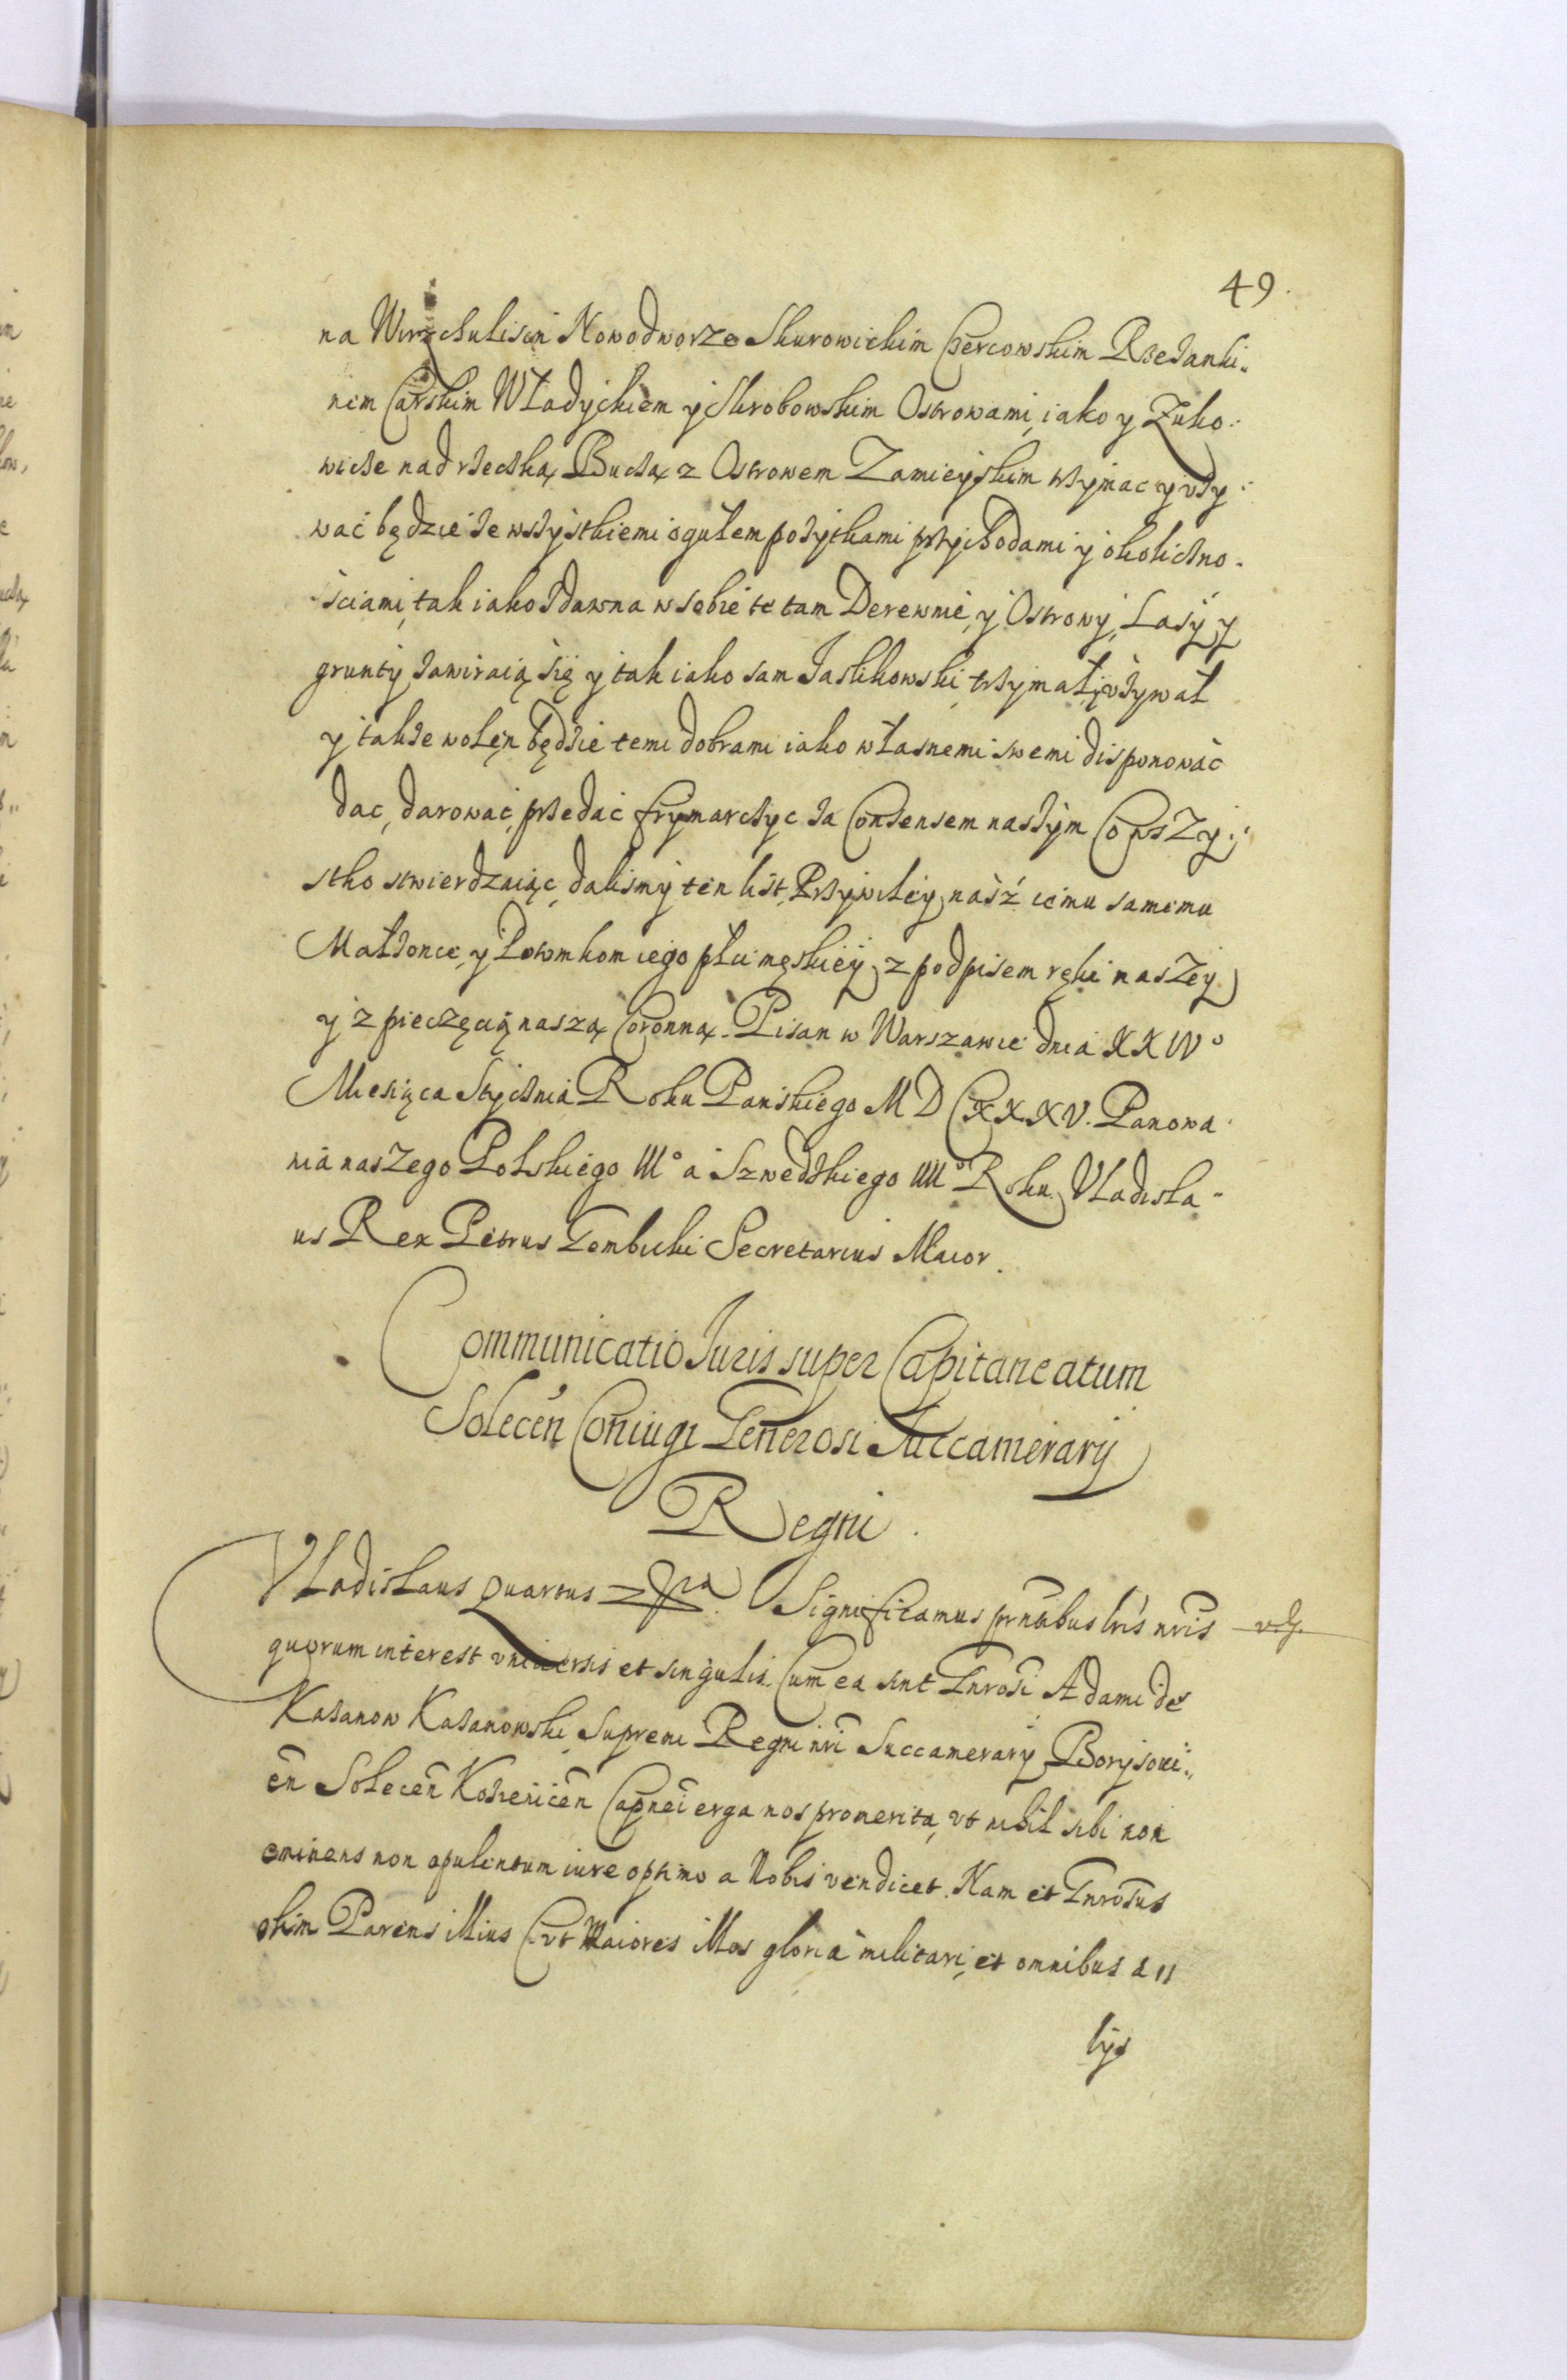 49.
na Wirzchulisin Nowodworze Skurowickim Chercowskim Rzezanki„
nem Carskim Władyckiem y Skrobowskim Ostrowami, iako y Zuko„
wicze nad rzeczką Buczą z Ostrowem Zamieyskim trzymac y vży„
wać będzie ze wszystkiemi ogułem pożytkami przychodami y okoliczno„
ściami, tak iako zdawna w sobie te tam Derewnie, y Ostrowy, Lasy, y
grunty zawiraią się y tak iako sam Jaslikowski trzymał y vżywał
y także wolęn będzie temi dobrami iako własnemi swemi disponować
dac, darować, przedać frymarczyc za Consensem naszym Co wszy„
stko stwierdzaiąc, daliśmy ten list Przywiley nasz iemu samemu
Małżonce, y Potomkom iego płci męskiey, z podpisem ręki naszey
y z pieczęcią naszą Coronną. Pisan w Warszawie dnia XXIV°
Miesiąca Stycznia Roku Pańskiego MDCXXXV. Panowa„
nia naszego Polskiego III° a Szwedzkiego IIII° Roku. Vladisla„
us Rex Petrus Gembicki Secretarius Maior.
Communicatio Iuris super Capitaneatum
Solecen̄ Coniugi Generosi Succamerarij
Regni.
Vladislaus Quartus Significamus prn̄tibus lrīs nrīs
quorum interest vniuersis et singulis. Cum ea sint Gnrosi Adami de
Kazanow Kazanowski Supremi Regni nrī Succamerarij Borysoui„
en̄ Solecen̄ Kozienicen̄ Capnei erga nos promerita, vt nihil sibi non
eminens non opulentum iure optimo a Nobis vendicet. Nam et Gnrosus
olim Parens illius (vt Maiores illos gloria militari, et omnibus a„
lijs